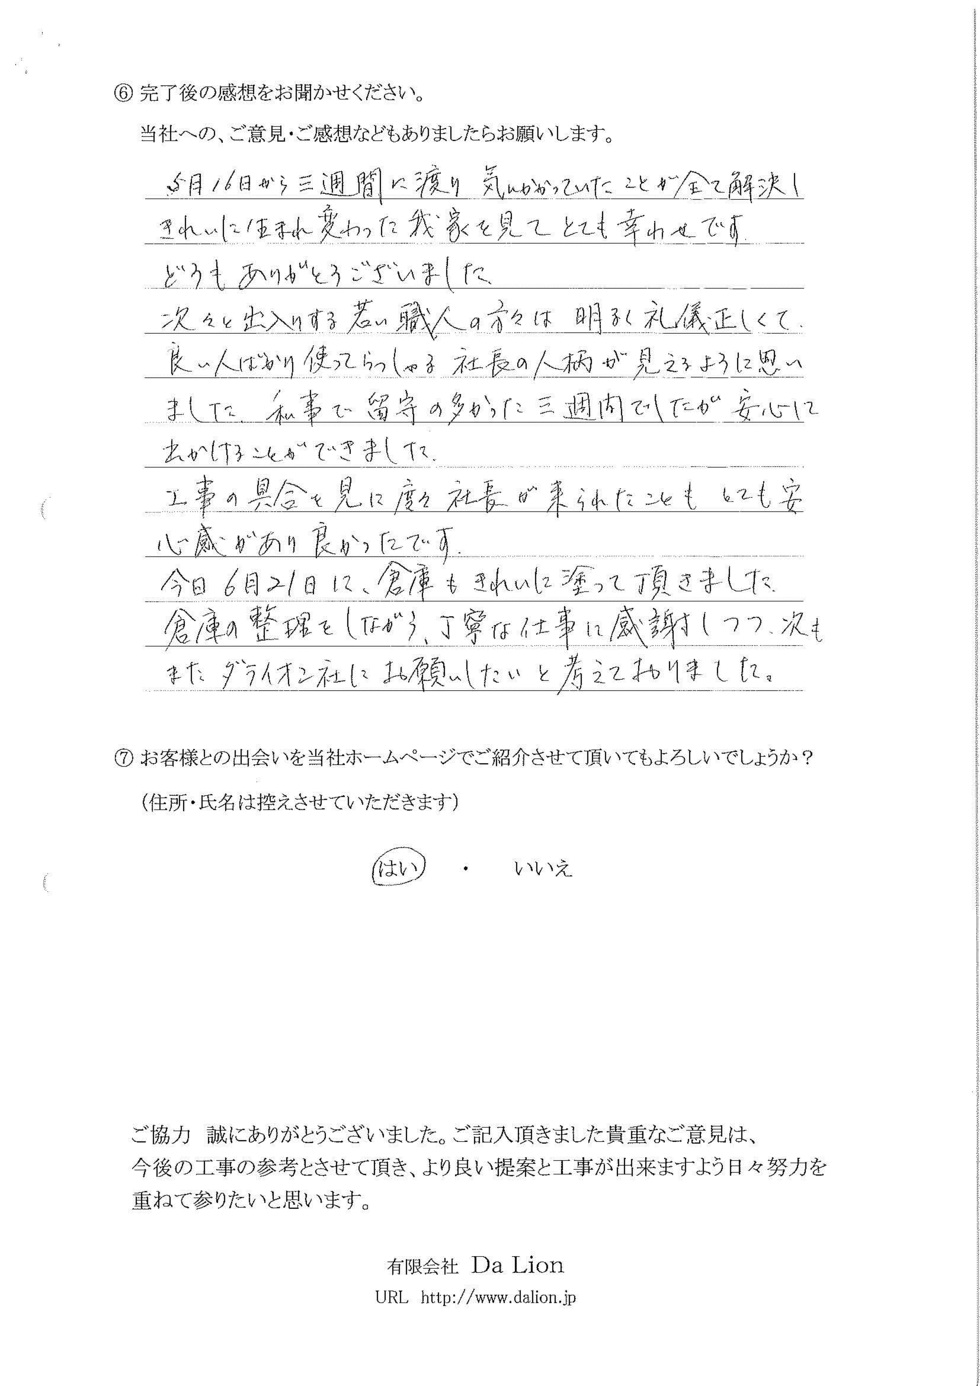 ⑥ 完了後の感想をお聞かせください。
当社への、ご意見・ご感想などもありましたらお願いします。
5月16日から三週間に渡り 気にかかっていたことが全て解決し
きれいに生まれ変わった我家を見て とても幸わせです。
どうも ありがとうございました。
次々と出入りする若い職人の方々は 明るく礼儀正しくて、
良い人ばかり使ってらっしゃる 社長の人柄が見えるように思い
ました。私事で留守の多かった三週間でしたが 安心して
出かけることができました。
工事の具合を見に度々社長が来られたことも とても安
心感があり良かったです。
今日6月21日に、倉庫もきれいに塗って頂きました。
倉庫の整理をしながら、丁寧な仕事に感謝しつつ、次も
また ダライオン社に お願いしたいと考えておりました。
⑦ お客様との出会いを当社ホームページでご紹介させて頂いてもよろしいでしょうか？
（住所・氏名は控えさせていただきます）
はい ・ いいえ
ご協力 誠にありがとうございました。ご記入頂きました貴重なご意見は、
今後の工事の参考とさせて頂き、より良い提案と工事が出来ますよう日々努力を
重ねて参りたいと思います。
有限会社 Da Lion
URL http://www.dalion.jp